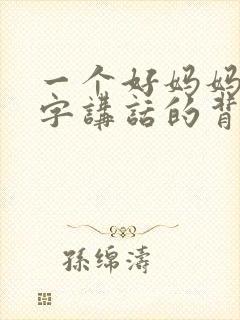 一个好妈妈
字講話的背
孫绵濤